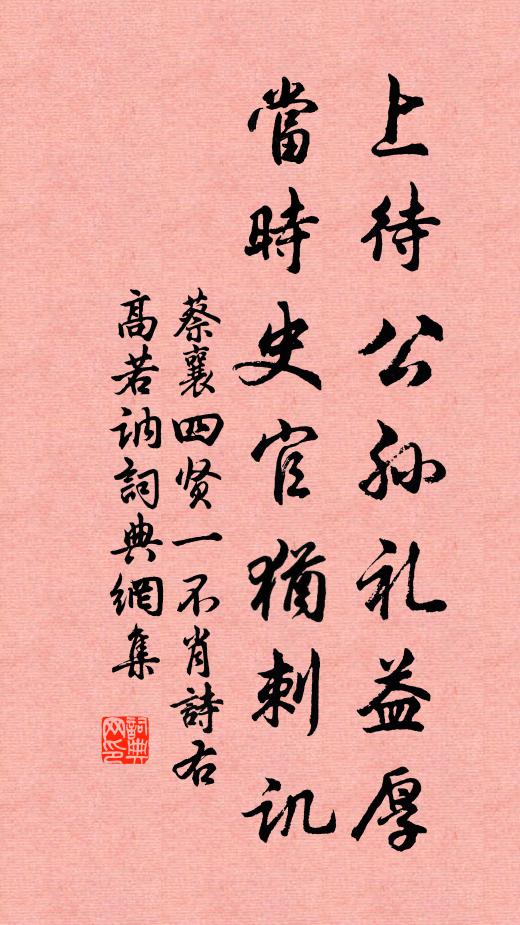 上待公孙礼益厚
當時史官猶刺讥
蔡襄四贤一不肖詩右
高若訥詞典網集
詞典网印